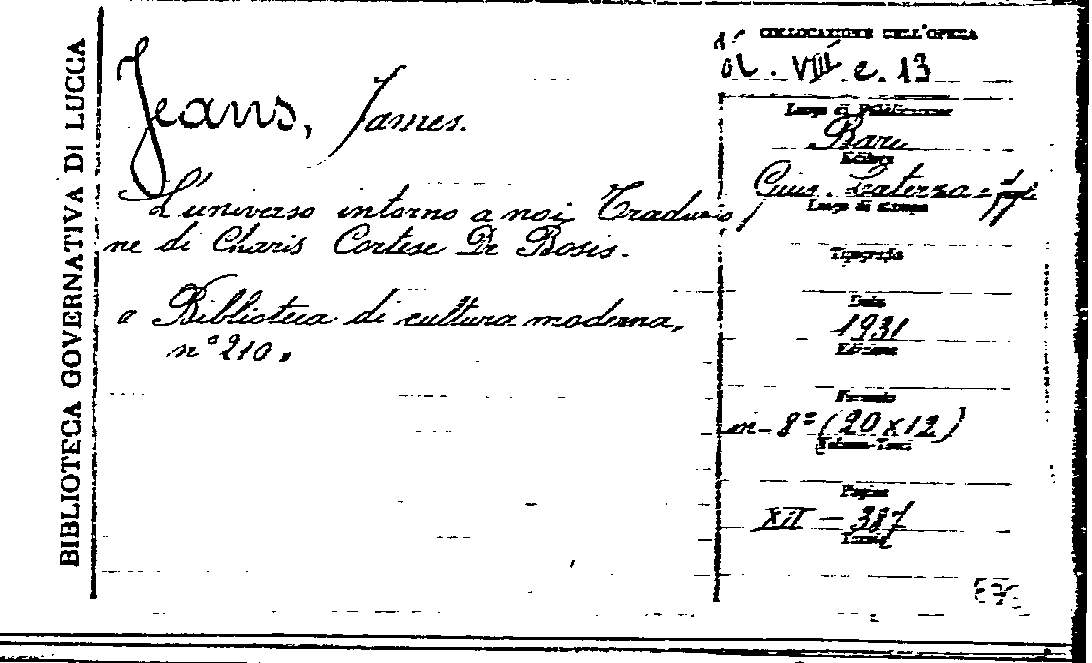 BIBLIOTECA GOVERNATIVA DI LUCCA
Jeans, James.
L'universo intorno a noi, Traduzio
ne di Charis Cortese De Bosis.
a Biblioteca di cultura moderna,
n° 210.
COLLOCAZIONE DELL'OPERA
VIII e. 13
Luogo di Pubblicazione
Bari
Editore
Gius. Laterza e
Luogo di stampa
Tipografia
Data
1931
Edizione
Formato
in-8° (20x12)
Pagine
XII - 387